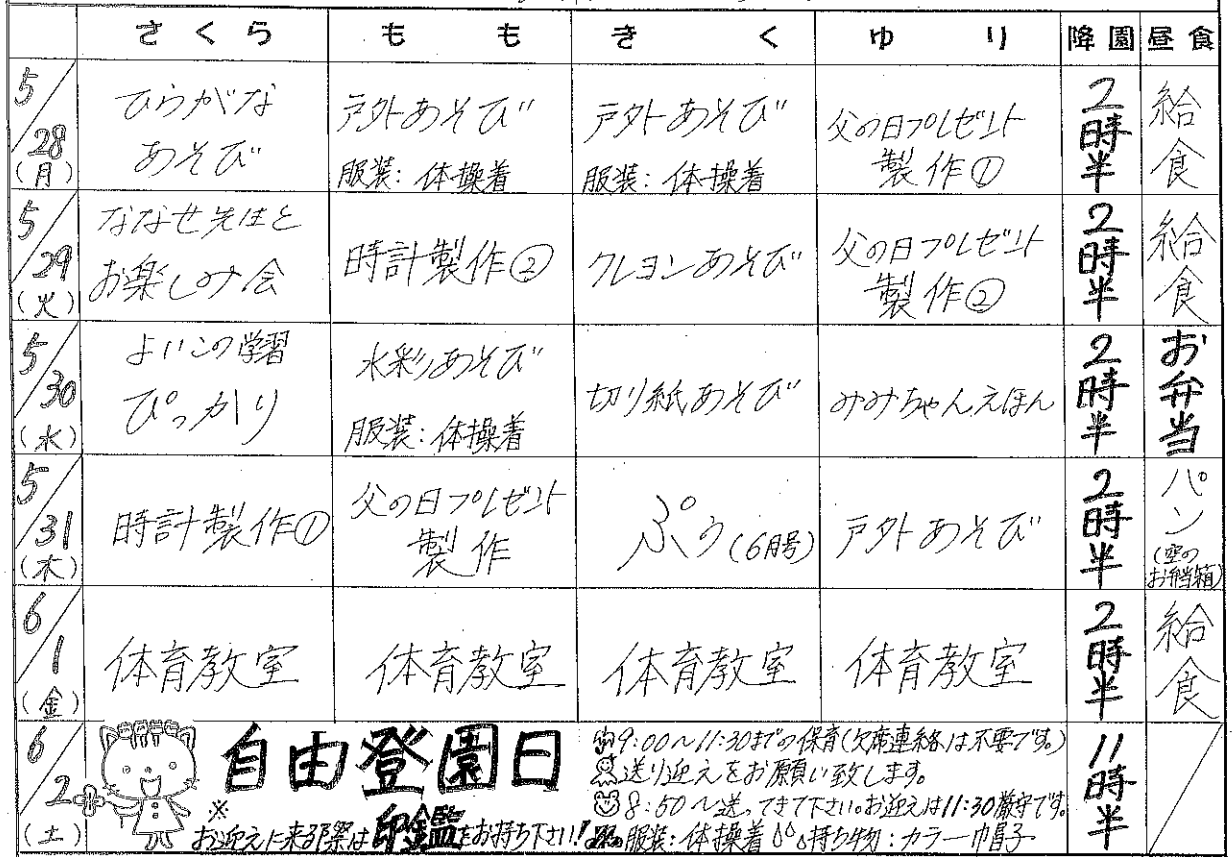 さくら もも きく ゆり 降園 昼食
5/28(月) ひらがなあそび 戸外あそび 服装:体操着 戸外あそび 服装:体操着 父の日プレゼント製作① 2時半 給食
5/29(火) ななせ先生とお楽しみ会 時計製作② クレヨンあそび 父の日プレゼント製作② 2時半 給食
5/30(水) よいこの学習ぴっかり 水彩あそび 服装:体操着 切り紙あそび みみちゃんえほん 2時半 お弁当
5/31(木) 時計製作① 父の日プレゼント製作 ぷぅ(6月号) 戸外あそび 2時半 パン(空のお弁当箱)
6/1(金) 体育教室 体育教室 体育教室 体育教室 2時半 給食
6/2(土) 自由登園日 11時半
※お迎えに来る際は印鑑をお持ち下さい!
9:00~11:30までの保育(欠席連絡は不要です。)
送り迎えをお願い致します。
8:50~送ってきて下さい。お迎えは11:30厳守です。
服装:体操着 持ち物:カラー帽子